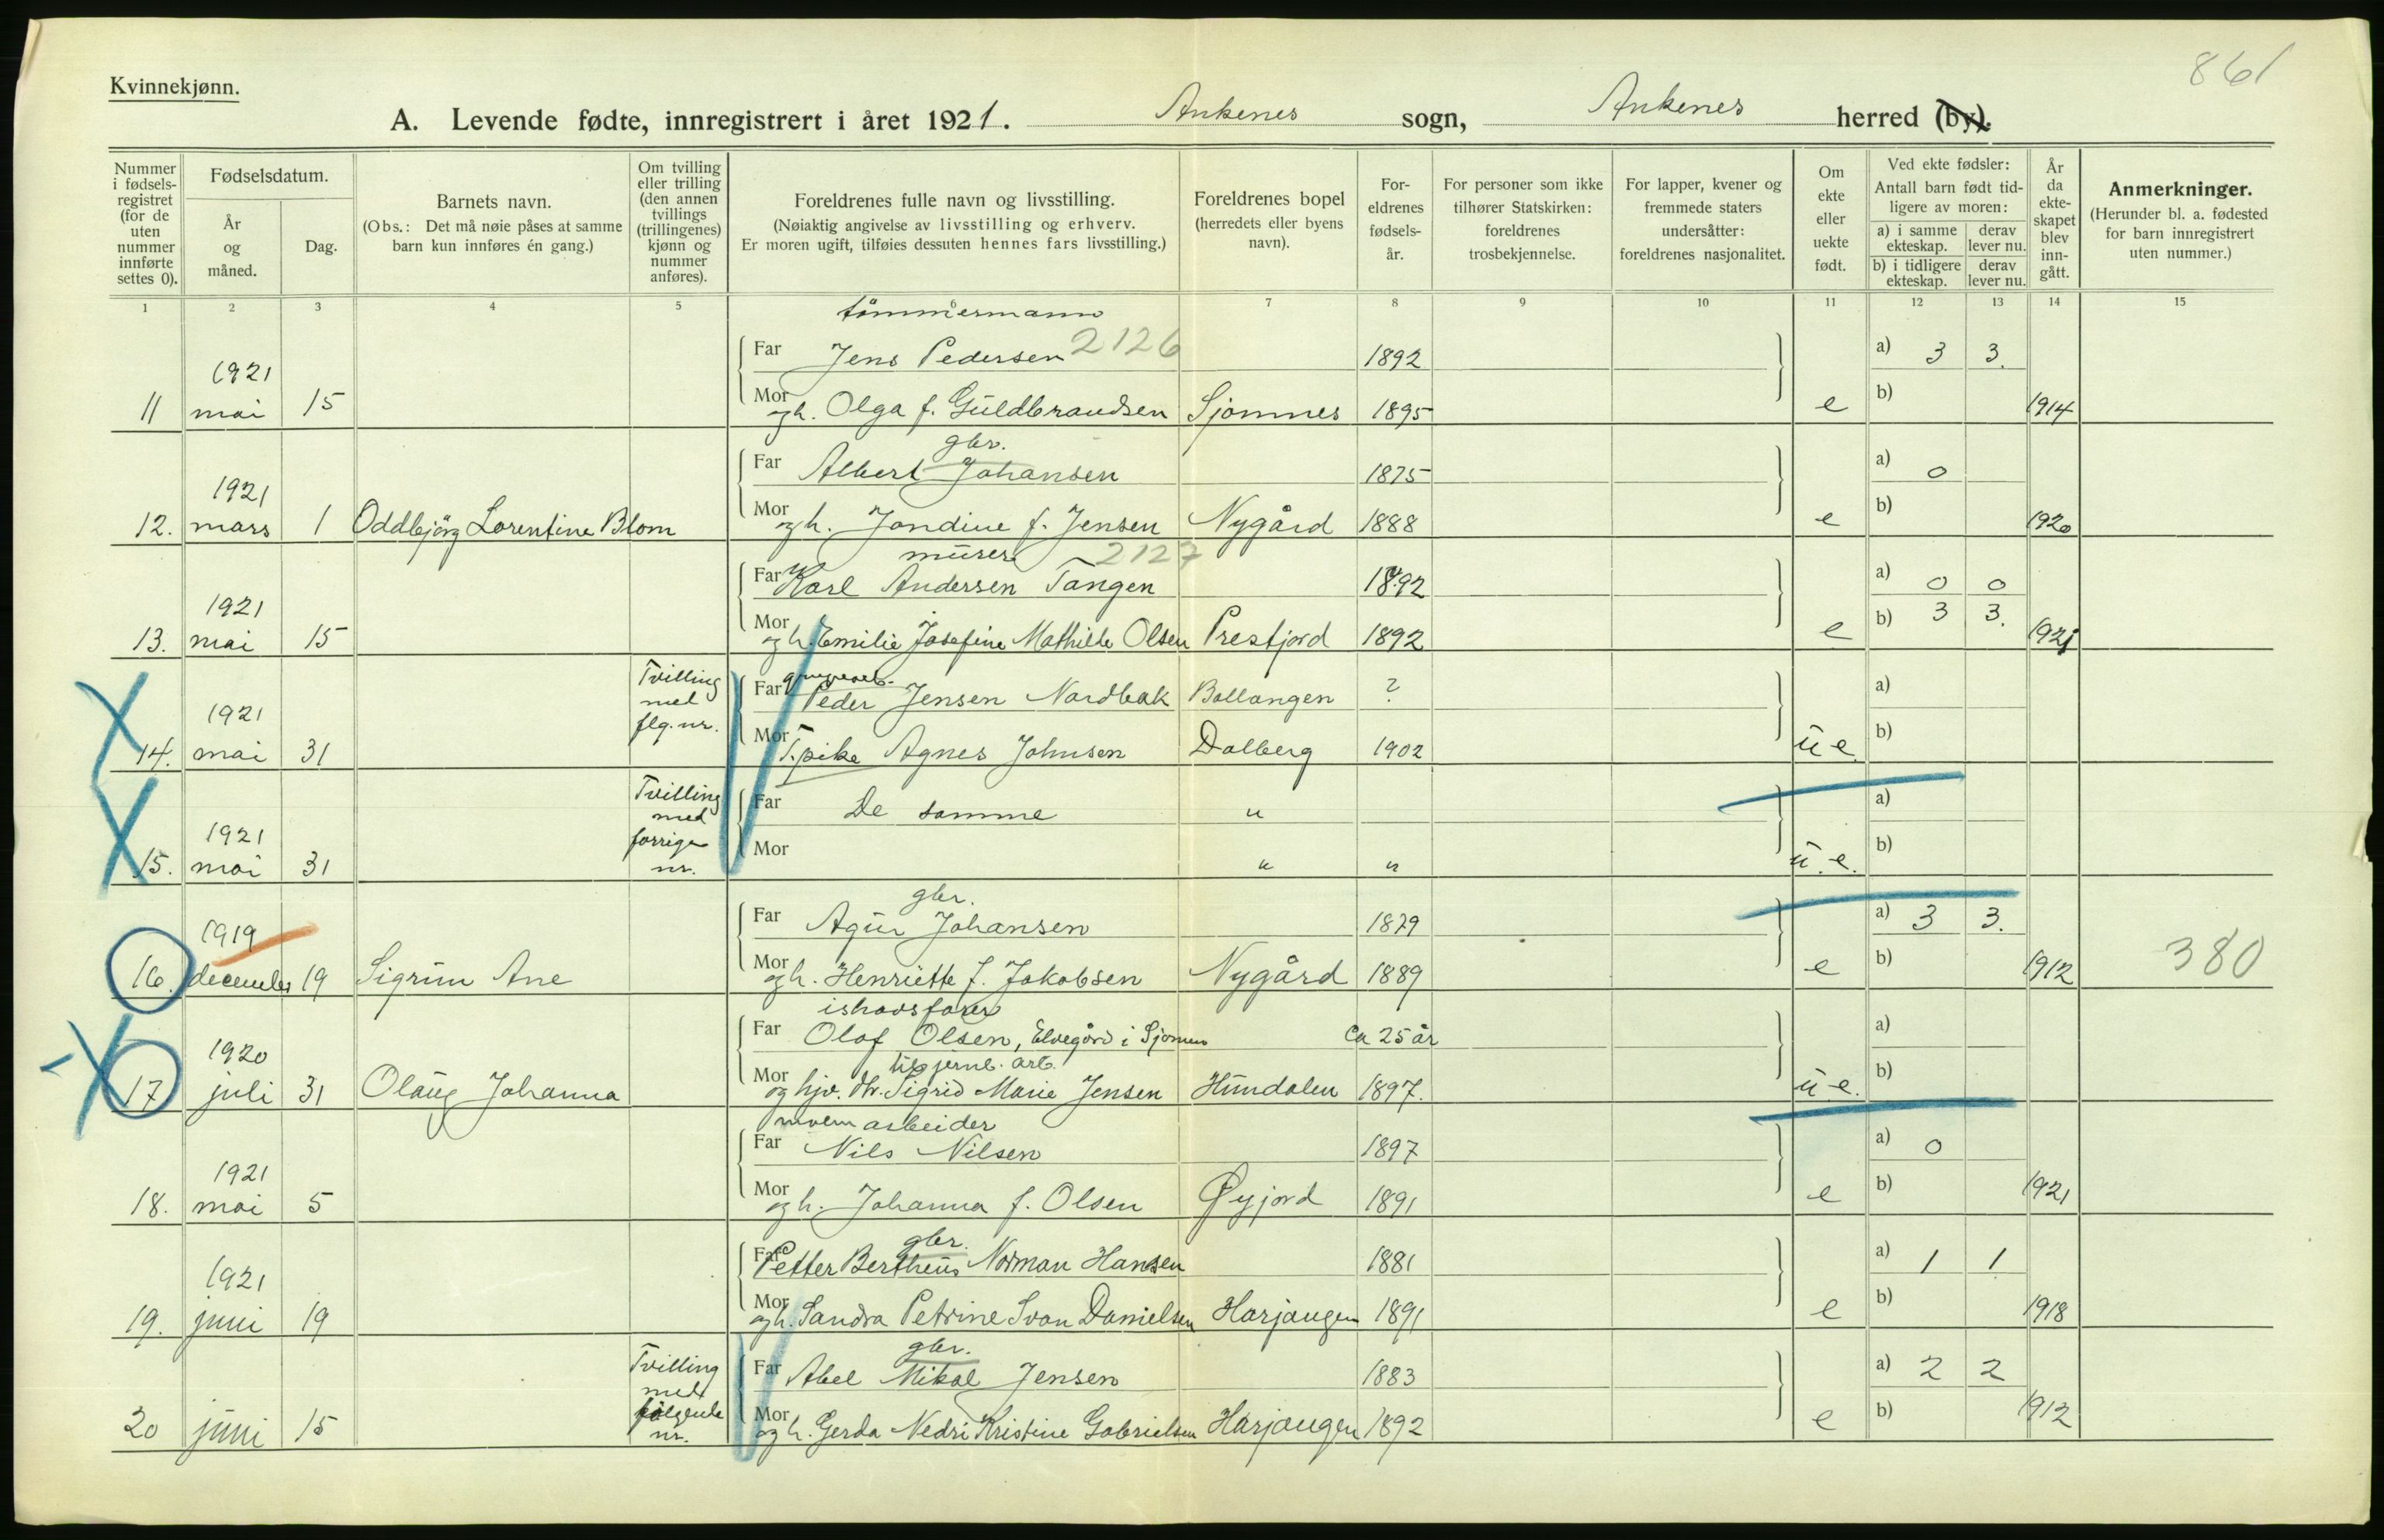 861
Kvinnekjønn.
A. Levende fødte, innregistrert i året 1921. Ankenes sogn, Ankenes herred (by).
Nummer i fødsels-registret (for de uten nummer innførte settes 0).
Fødselsdatum.
År og måned.
Dag.
Barnets navn.
(Obs.: Det må nøie påses at samme barn kun innføres én gang.)
Om tvilling eller trilling (den annen tvillings (trillingenes) kjønn og nummer anføres).
Foreldrenes fulle navn og livsstilling.
(Nøiaktig angivelse av livsstilling og erhverv.
Er moren ugift, tilføies dessuten hennes fars livsstilling.)
Foreldrenes bopel (herredets eller byens navn).
For-eldrenes fødsels-år.
For personer som ikke tilhører Statskirken: foreldrenes trosbekjennelse.
For lapper, kvener og fremmede staters undersåtter: foreldrenes nasjonalitet.
Om ekte eller uekte født.
Ved ekte fødsler:
Antall barn født tid-ligere av moren:
a) i samme ekteskap. derav lever nu.
b) i tidligere ekteskap. derav lever nu.
År da ekte-skapet blev inn-gått.
Anmerkninger.
(Herunder bl. a. fødested for barn innregistrert uten nummer.)
1 2 3 4 5 6 7 8 9 10 11 12 13 14 15
tömmermann
Far Jens Pedersen 2126 1892 a) 3 3.
1921
11 mai 15 Mor og h. Olga f. Guldbrandsen Sjomnes 1895 e b) 1914
gbr.
Far Albert Johansen 1875 a) 0
1921
12. mars 1 Oddbjörg Lorentine Blom Mor og h. Jondine f. Jensen Nygård 1888 e b) 1920
murer 2127
Far Karl Andersen Tangen 1892 a) 0 0
1921
13. mai 15 Mor og h. Emilie Josefine Mathilde Olsen Presfjord 1892 e b) 3 3. 1921
Tvilling med flg. nr.
Far Peder Jensen Nordbak Ballangen ? a)
1921
14. mai 31 Mor T. pike Agnes Johnsen Dalberg 1902 u e. b)
Tvilling med forrige nr.
Far De samme " a)
1921
15. mai 31 Mor " " u. e. b)
gbr.
Far Agur Johansen 1879 a) 3 3.
1919
16. december 19 Sigrun Ane Mor og h. Henriette f. Jakobsen Nygård 1889 e b) 1912 380
ishavsfarer
Far Olaf Olsen, Elvegård i Sjomen ca 25 år a)
1920
jernb. arb.
17 juli 31 Olaug Johanna Mor og hjv. dtr. Sigrid Marie Jensen Hundalen 1897. u e. b)
arbeider
Far Nils Nilsen 1897 a) 0
1921
18. mai 5 Mor og h. Johanna f. Olsen Øyjord 1891 e b) 1921
gbr.
Far Petter Bertheus Norman Hansen 1881 a) 1 1
1921
19. juni 19 Mor og h. Sandra Petrine Svan Danielsen Harjangen 1891 e b) 1918
gbr.
Tvilling med følgende nr.
Far Abel Mikal Jensen 1883 a) 2 2
20 juni 15 Mor og h. Gerda Nedri Kristine Gabrielsen Harjangen 1892 e b) 1912